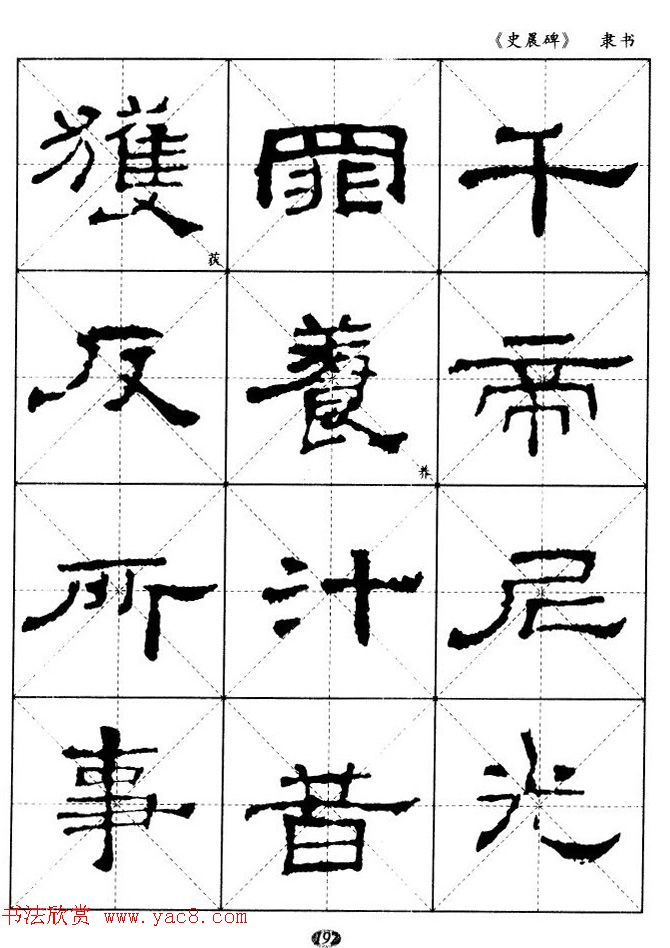 《史晨碑》 隶书
千帝尼光
罪養汁昔
养
獲及所事
获
书法欣赏 www.yac8.com
192